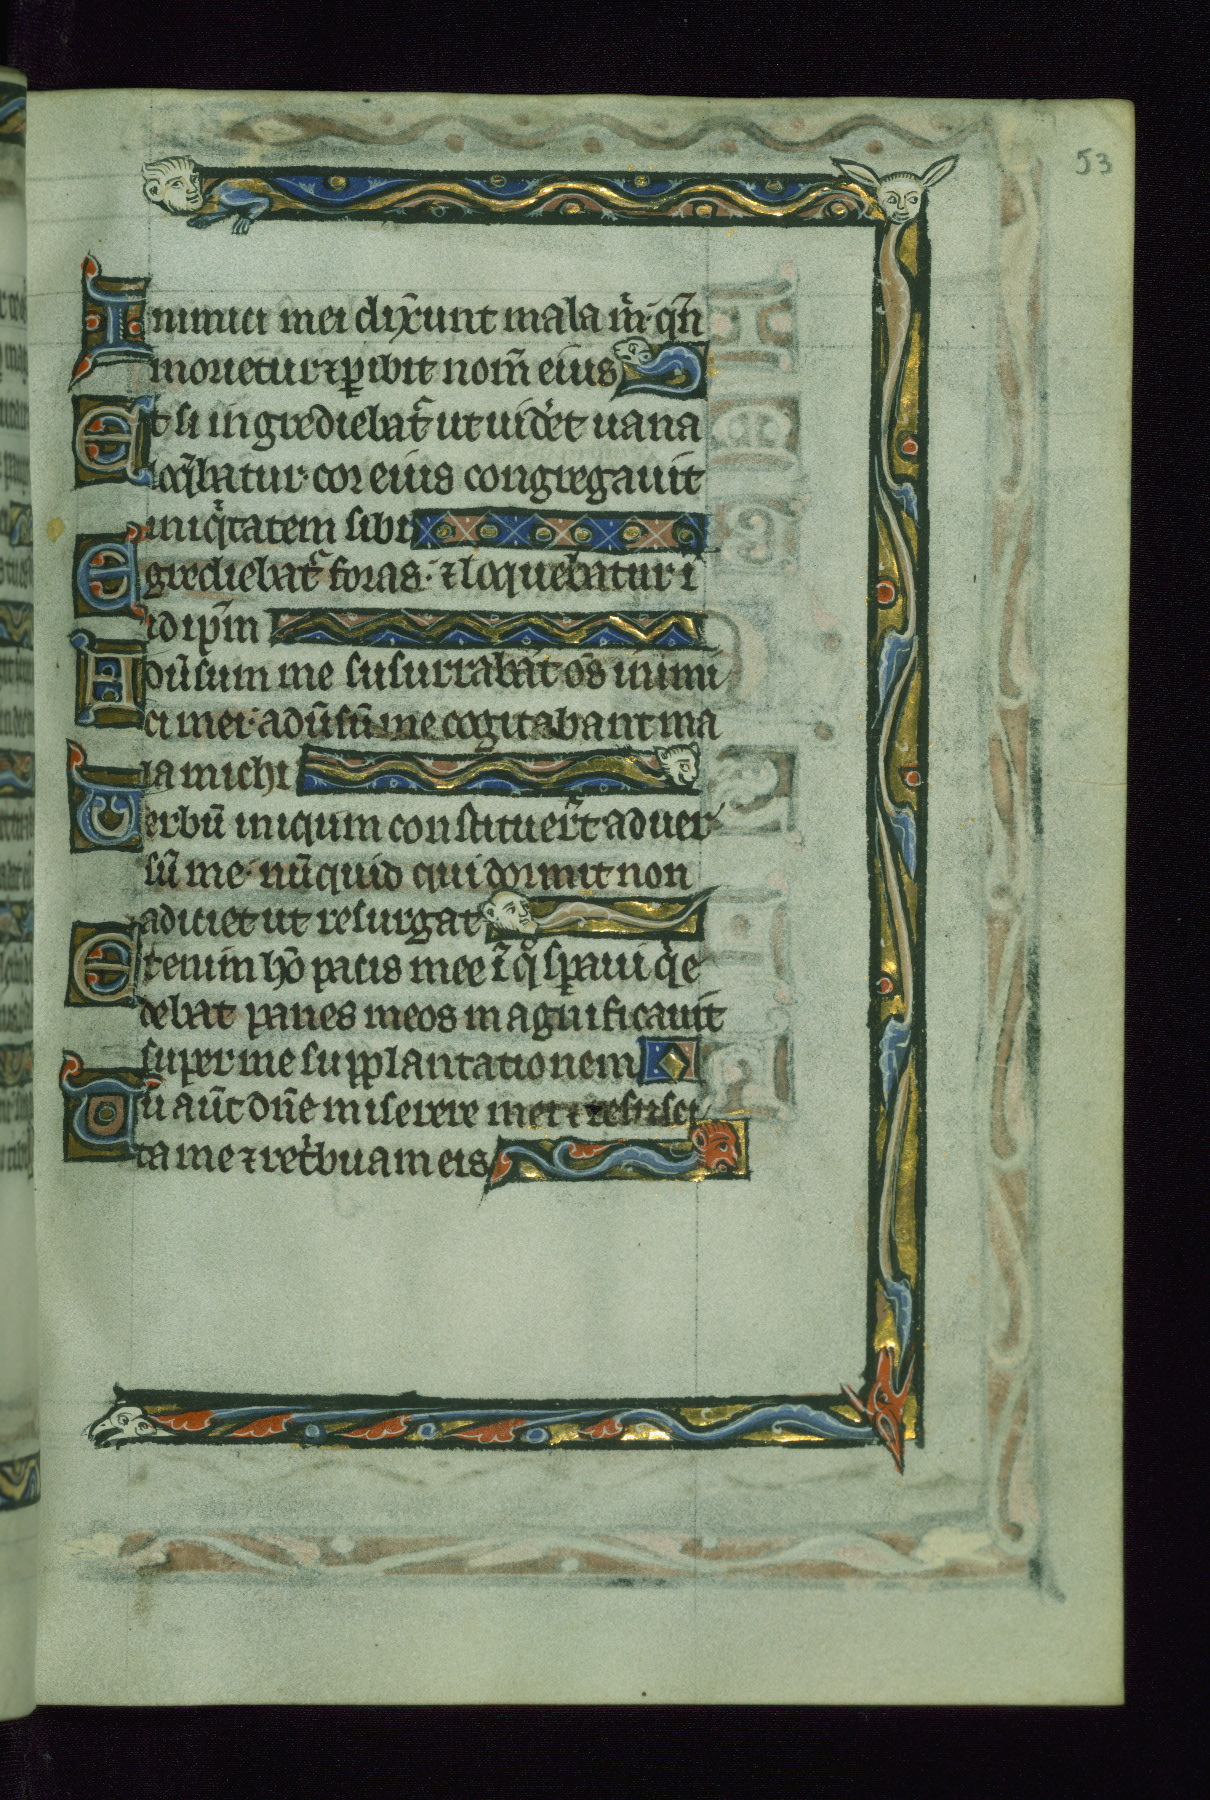 53
Inimici mei dixerunt mala m̉· qn̄
morietur ⁊ ꝑibit nom̄ eius
Et si ingrediebat᷑ ut uid̉et uana
loq̄batur· cor eius congregauit
iniq̉tatem sibi
Egrediebat᷑ foras· ⁊ loquebatur ī
idip̄m
Aduūsum me susurrabāt om̄s inimi
ci mei· aduūsū me cogitabant ma
la michi
Uerbū iniqum constituer̄t aduer
sū me· nūquid qui dormit non
adiciet ut resurgat
Etenim hō pacis mee ī q̊ sꝑaui q̉ e
debat panes meos magnificauit
super me supplantationem
Tu aūt dn̄e miserere mei ⁊ resusci
ta me ⁊ ret̉buam eis